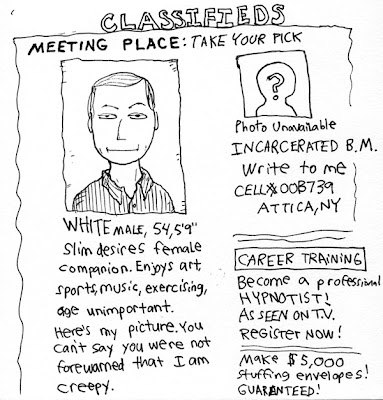 CLASSIFIEDS
MEETING PLACE: TAKE YOUR PICK
WHITE MALE, 54, 5'9"
Slim desires female
companion. Enjoys art,
sports, music, exercising,
age unimportant.
Here's my picture. You
can't say you were not
forewarned that I am
creepy.
?
Photo Unavailable
INCARCERATED B.M.
Write to me
CELL# 00B739
ATTICA, NY
CAREER TRAINING
Become a professional
HYPNOTIST!
AS SEEN ON T.V.
REGISTER NOW!
Make $5,000
stuffing envelopes!
GUARANTEED!